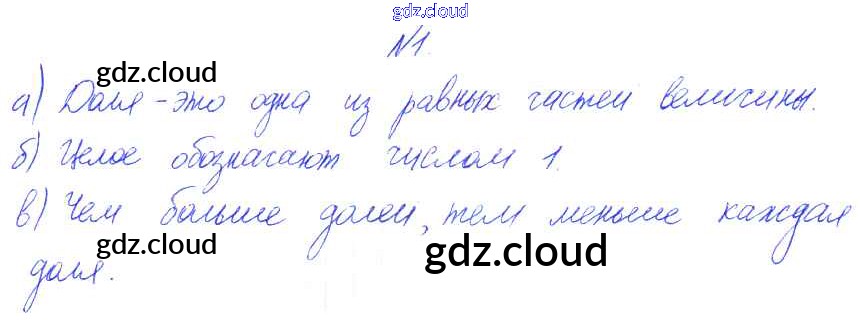 gdz.cloud
№1.
gdz.cloud
а) Доля - это одна из равных частей величины.
б) Целое обозначают числом 1.
в) Чем больше долей, тем меньше каждая
gdz.cloud gdz.cloud
доля.